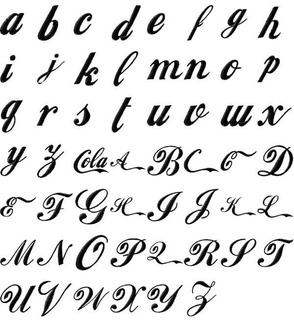 a b c d e f g h
i j k l m n o p
q r s t u v w x
y z Cola A B C C D
E F G H I J K L
M N O P Q R S T
U V W X Y Z